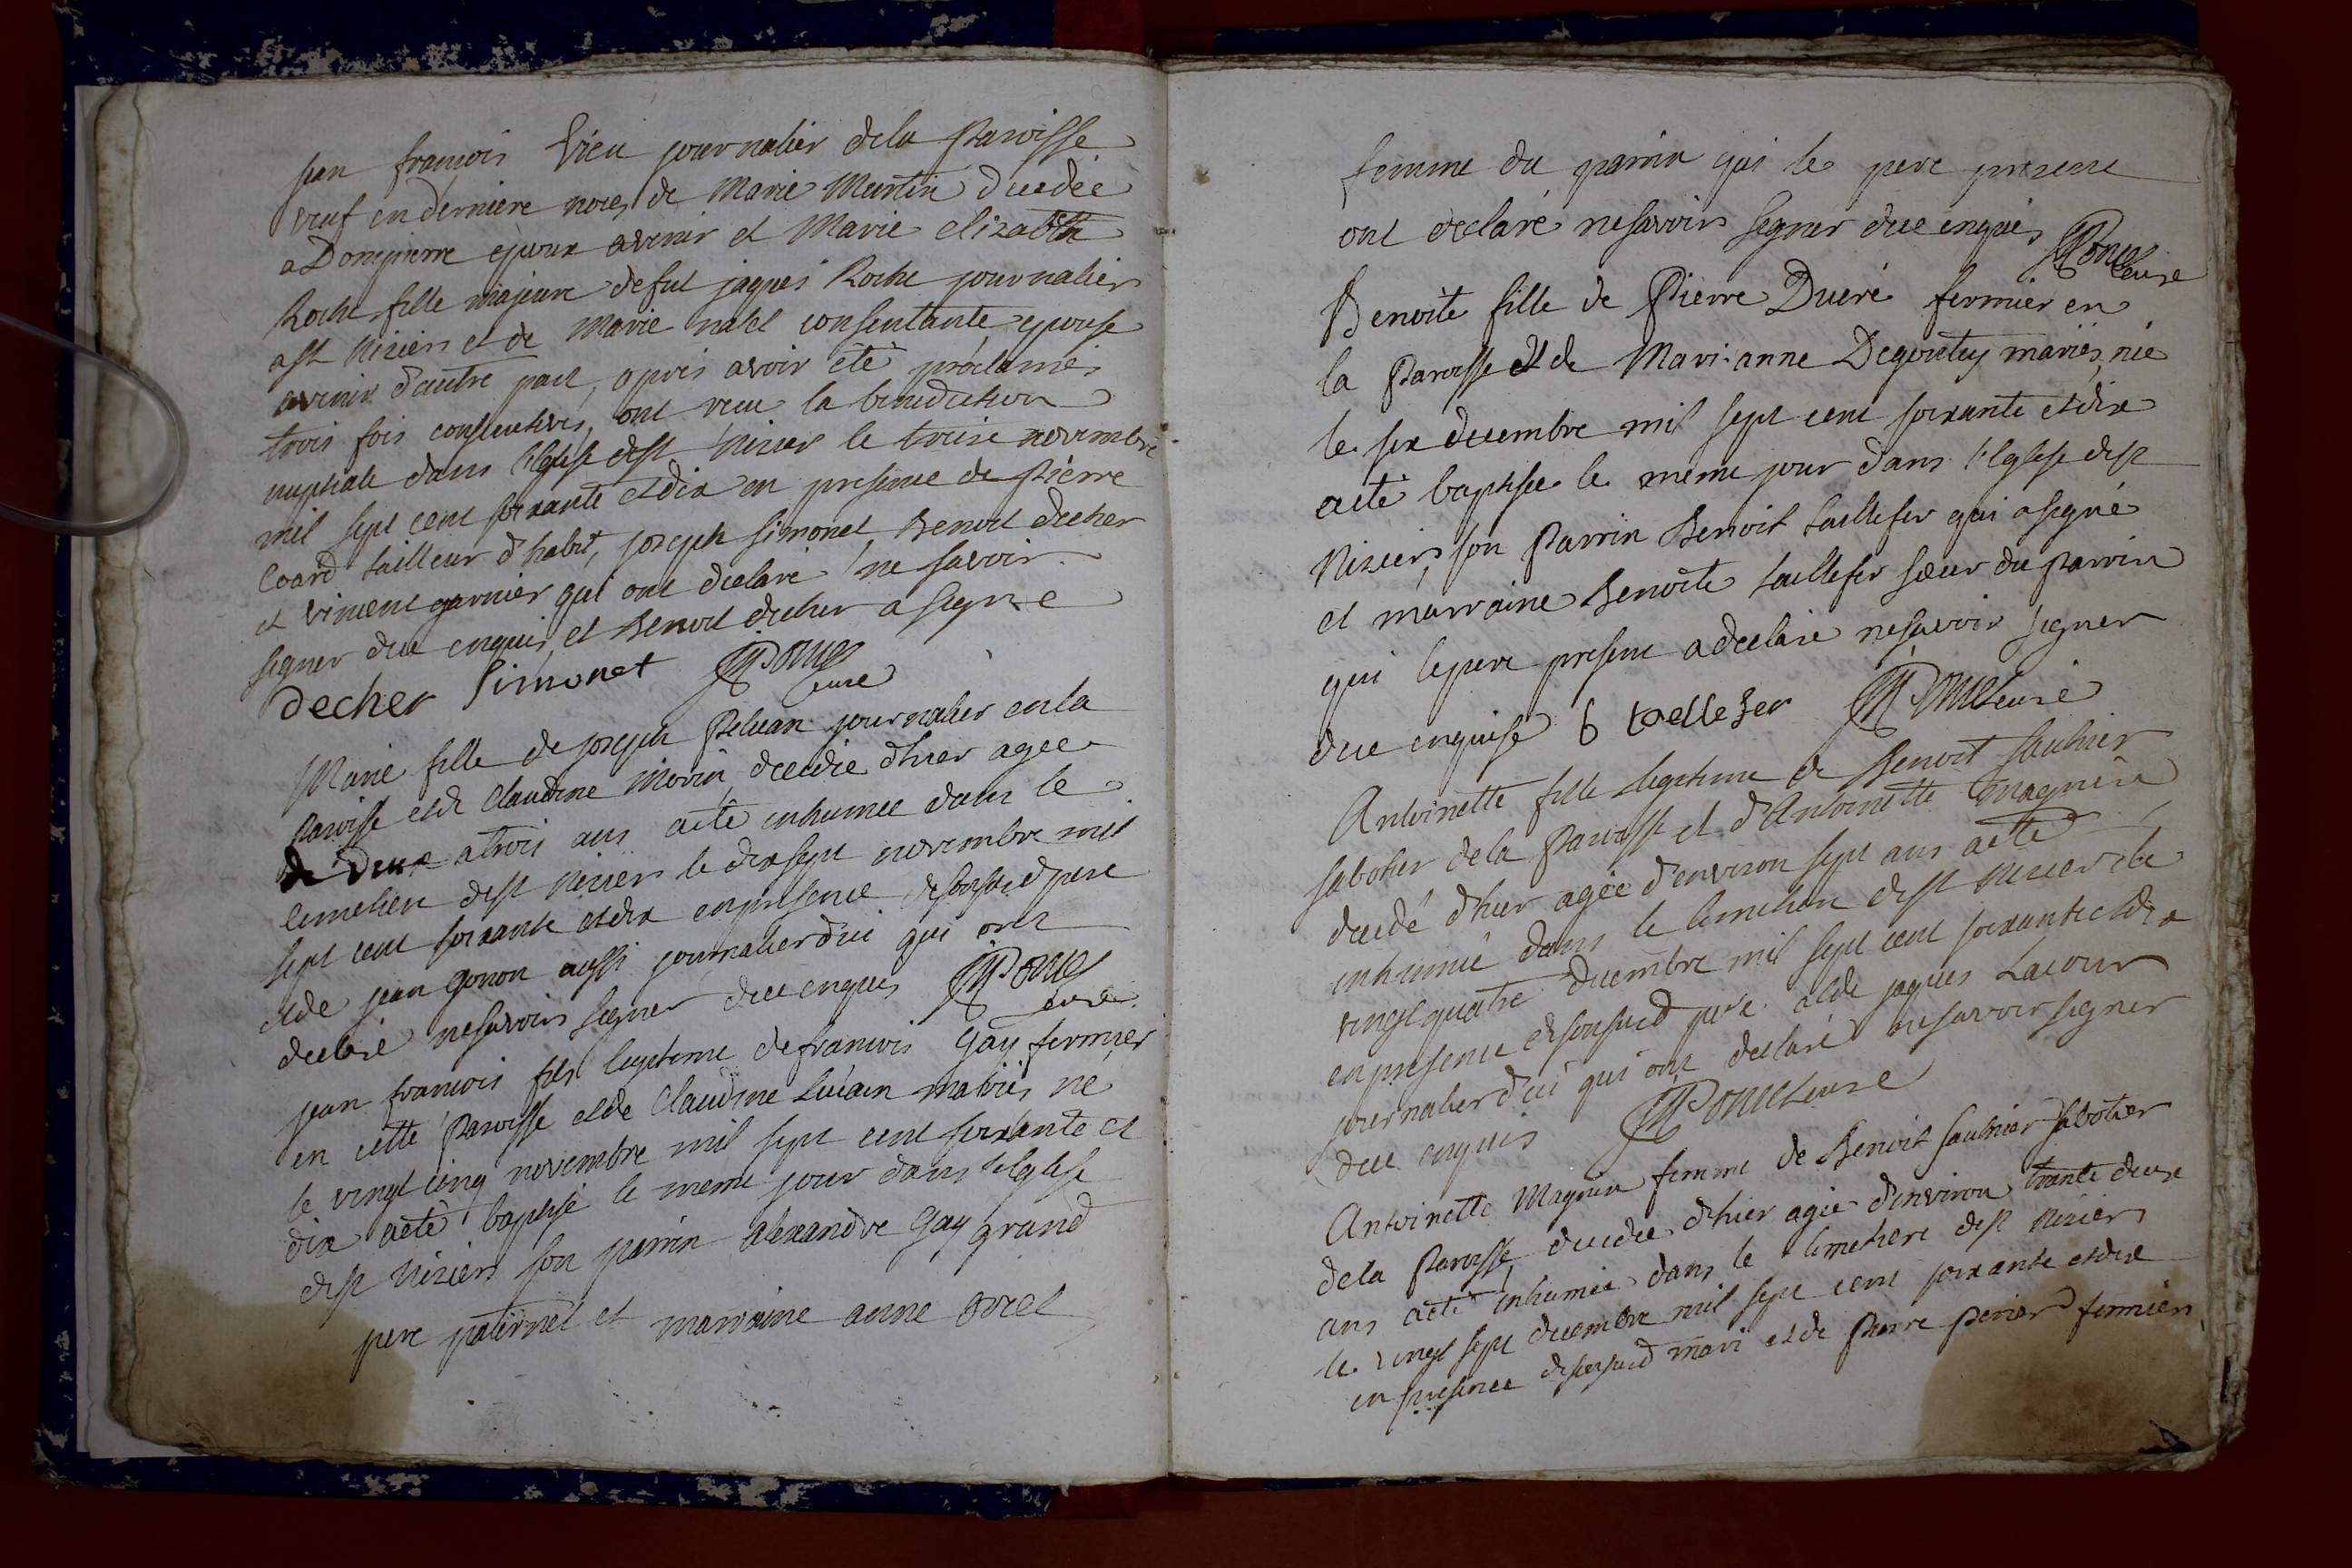 jean françois Vieu journalier dela Paroisse
veuf en derniere noces de Marie Martin decedée
a Dompierre epoux avenir et Marie elizabeth
Roche fille majeure defut jaques Roche journalier
a st Niziers et de Marie consentante epouse
avenir d'autre part, apres avoir été proclamés
trois fois consecutives, ont recu la benediction
nuptiale dans l'Eglise dest Nizier le treise novembre
mil sept cent soixante et dix en presence de Pierre
Coard tailleur d'habit, joseph simonet, Benoit decher
et vincent garnier qui ont declaré ne savoir
signer dece enquis, et Benoit decher a signe
decher simonet
curé
Marie fille de joseph Peluan journalier en la
Paroisse et de Claudine Morin, decedée d'hier agee
de deux a trois ans aété inhumee dans le
cimetiere dest Niziers le dix sept novembre mil
sept cent soixante et dix en presence de son susd pere
et de jean gonon aussi journalier d'ici qui ont
declaré nesavoir signer dece enquis
curé
jean francois fils legitime defrancois Gay fermier
en cette Paroisse et de Claudine mariés, né
le vingt cinq novembre mil sept cent soixante et
dix aété baptisé le meme jour dans l'eglise
dest Niziers son parrin alexandre Gay grand
pere paternel et marraine anne
femme du parrin qui le pere presens
ont declaré nesavoir signer dece enquis
curé
Benoite fille de Pierre Dueré fermier en
la Paroisse et de Mari-anne Degoutey mariés, née
le six decembre mil sept cent soixante et dix
aété baptisee le meme jour dans l'Eglise dest
Niziers, son Parrin Benoit taillefer qui a signé
et marraine Benoite taillefer sœur du parrin
qui le pere present a declare nesavoir signer
dece enquise b tellefer curé
Antoinette fille legitime de Benoit saulnier
sabotier dela Paroisse et d'Antoinette Magnin
decedé d'hier agée d'environ sept ans aété
inhumé dans le cimetiere dest Nizier le
vingt quatre decembre mil sept cent soixante et dix
en presence deson susd pere et de jaques Lacour
journalier d'ici qui ont declaré nesavoir signer
dece enquis curé
Antoinette Magnin femme de Benoit saulnier sabotier
dela Paroisse, decedée d'hier agée d'environ trante deux
ans aété inhumée dans le cimetiere dest Niziers
le vingt sept decembre mil sept cent soixante et dix
en presence deson susd mari et de Pierre perier fermiers